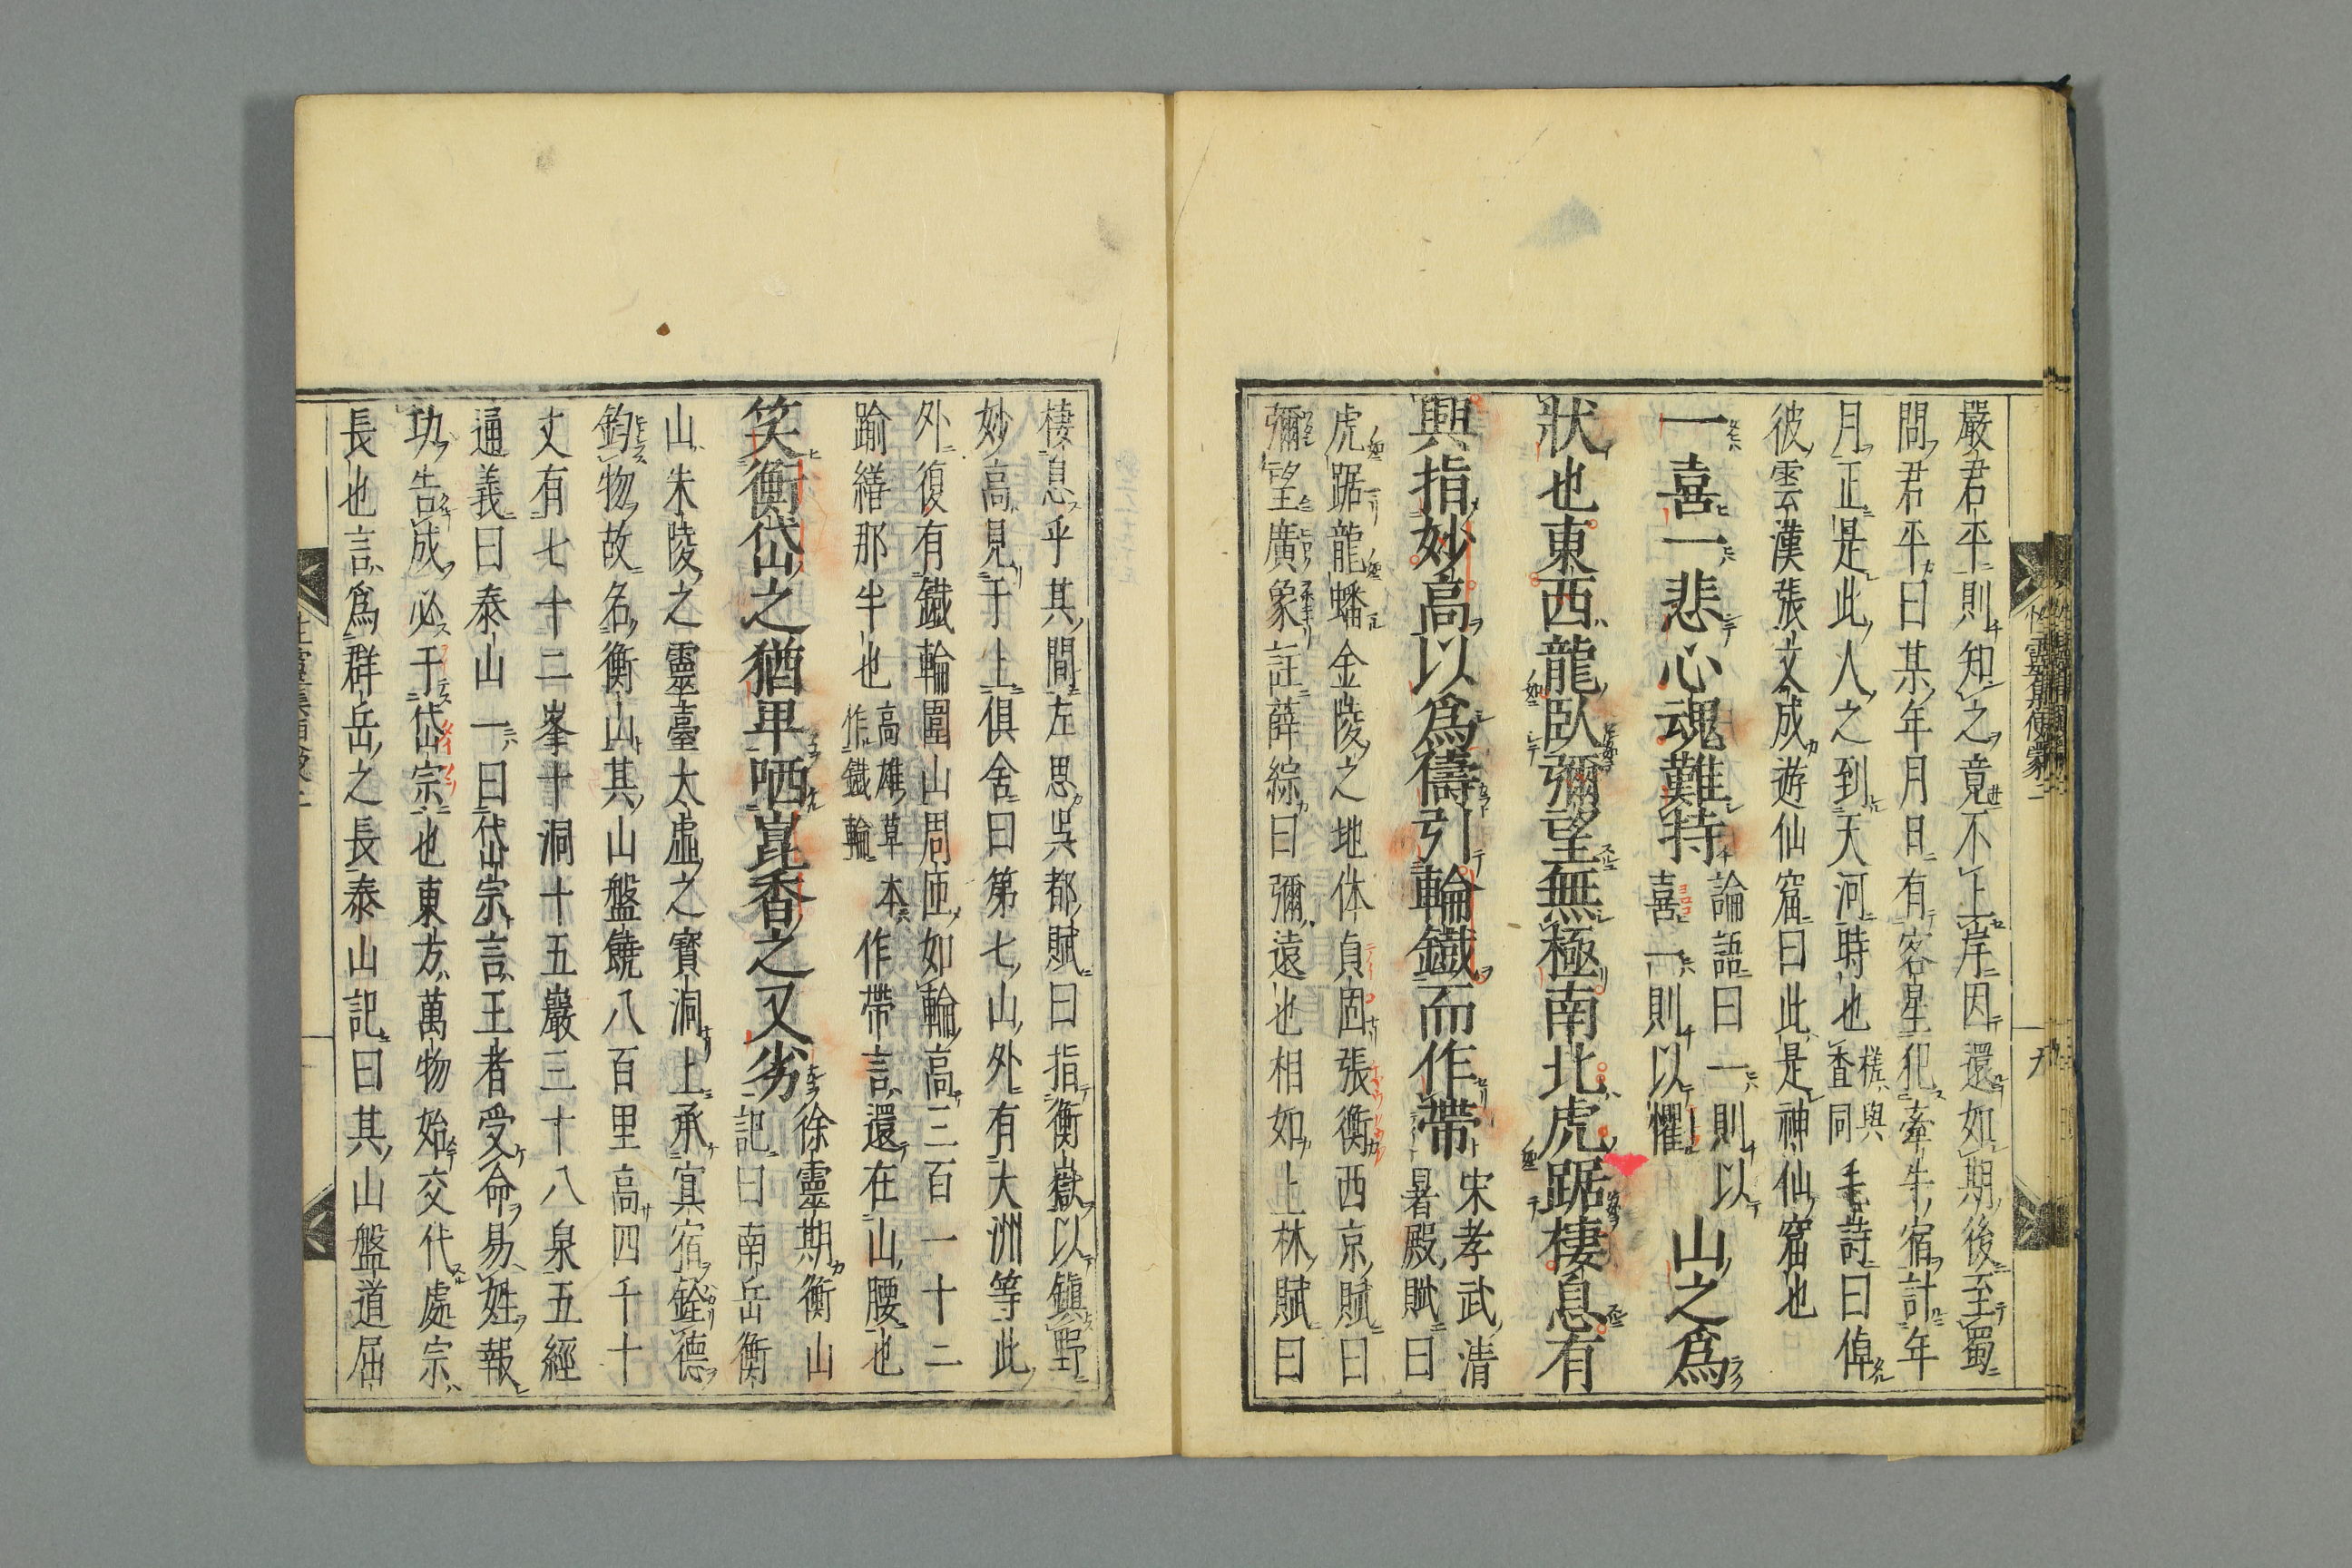 嚴君平則知之竟不上岸因還如期後至蜀
問君平曰某年月日有客星犯牽牛宿計年
月正是此人之到天河時也槎與査同毛詩曰倬
彼雲漢張文成遊仙窟曰此是神仙窟也
一喜一悲心魂難持論語曰一則以喜一則以懼山之爲
狀也東西龍臥彌望無極南北虎踞棲息有
興指妙高以爲儔引輪鐵而作帶宋孝武清暑殿賦曰
虎踞龍蟠金陵之地体貞固張衡西京賦曰
彌望廣象註薛綜曰彌遠也相如上林賦曰
棲息乎其間左思吳都賦曰指衡嶽以鎮野
妙高見于上俱舍曰第七山外有大洲等此
外復有鐵輪圍山周匝如輪高三百一十二
踰繕那半也高雄草本作鐵輪作帶言還在山腰也
笑衡岱之猶卑哂崑香之又劣徐靈期衡山記曰南岳衡
山朱陵之靈臺大虛之寶洞上承冥宿銓德
鈞物故名衡山其山盤繞八百里高四千十
丈有七十二峯十洞十五巖三十八泉五經
通義曰泰山一曰岱宗言王者受命易姓報
功告成必于岱宗也東方萬物始交代處宗
長也言爲群岳之長泰山記曰其山盤道屈
性靈集便蒙二
九